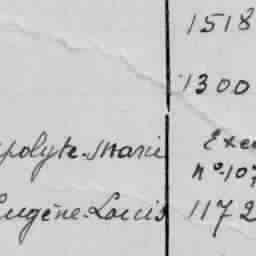 1518
1300
ppolyte-Marie Exem
n° 107
Eugène-Louis 1172